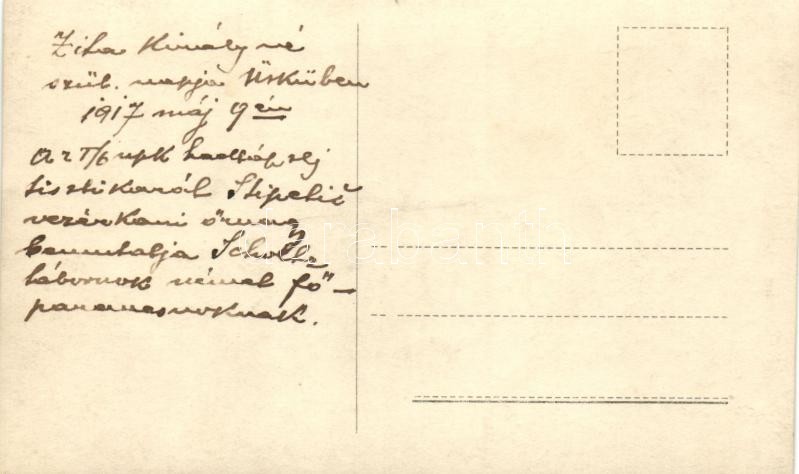 Zita Királyné
szül. napja Üsküben
1917 máj 9 én
Az hadtáp
tisztikarát Stipetić
vezérkari őrnagy
bemutatja Scholtz
tábornok német fő-
parancsnoknak.
darabanth